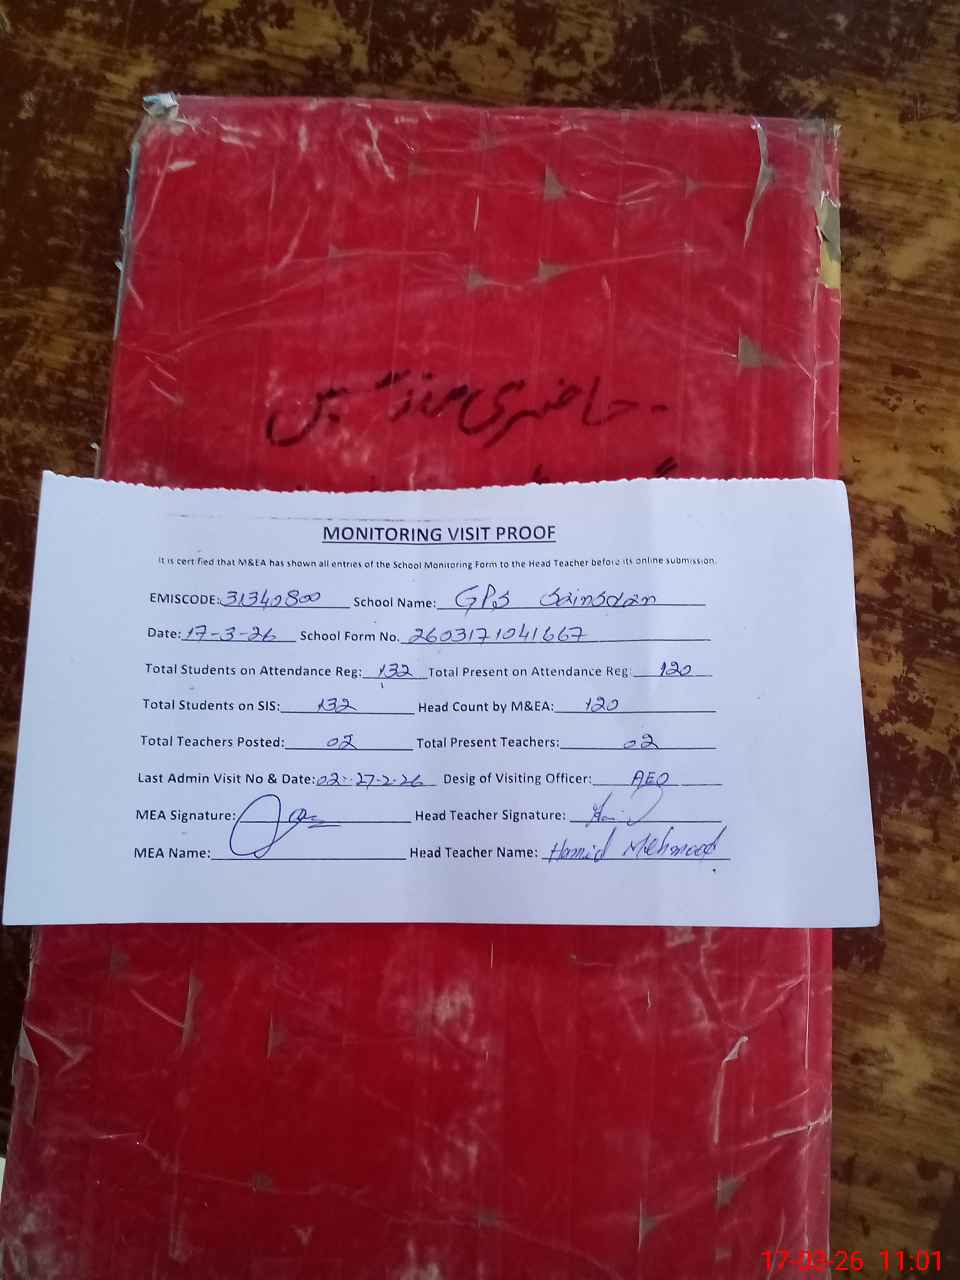 حاضری مدرسین
MONITORING VISIT PROOF
It is certified that M&EA has shown all entries of the School Monitoring Form to the Head Teacher before its online submission.
EMISCODE: 31340800 School Name: GPS Sainsdan
Date: 17-3-26 School Form No. 2603171041667
Total Students on Attendance Reg: 132 Total Present on Attendance Reg: 120
Total Students on SIS: 132 Head Count by M&EA: 120
Total Teachers Posted: 02 Total Present Teachers: 02
Last Admin Visit No & Date: 02-27-2-26 Desig of Visiting Officer: AEO
MEA Signature: Head Teacher Signature:
MEA Name: Head Teacher Name: Hamid Mehmood
17-03-26 11:01